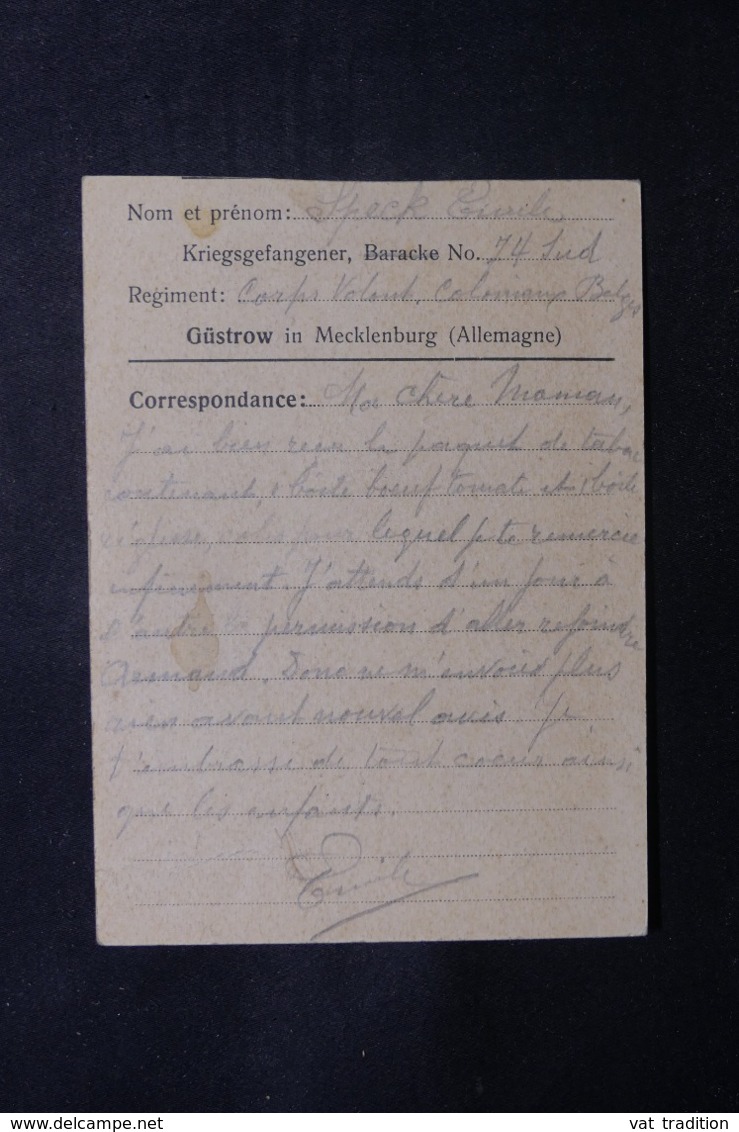 Nom et prénom: Speck Emile
Kriegsgefangener, Baracke No. 74 Sud
Regiment: Corps Volont. Coloniaux Belges
Güstrow in Mecklenburg (Allemagne)
Correspondance: Ma chère Maman,
J'ai bien reçu le paquet de tabac
contenant 1 boite boeuf tomate et 1 boite
pour lequel je te remercie
infiniment. J'attends d'un jour à
l'autre la permission d'aller rejoindre
Armand. Donc ne m'envoies plus
rien avant nouvel avis. Je
t'embrasse de tout coeur ainsi
que les enfants.
Emile
vat tradition